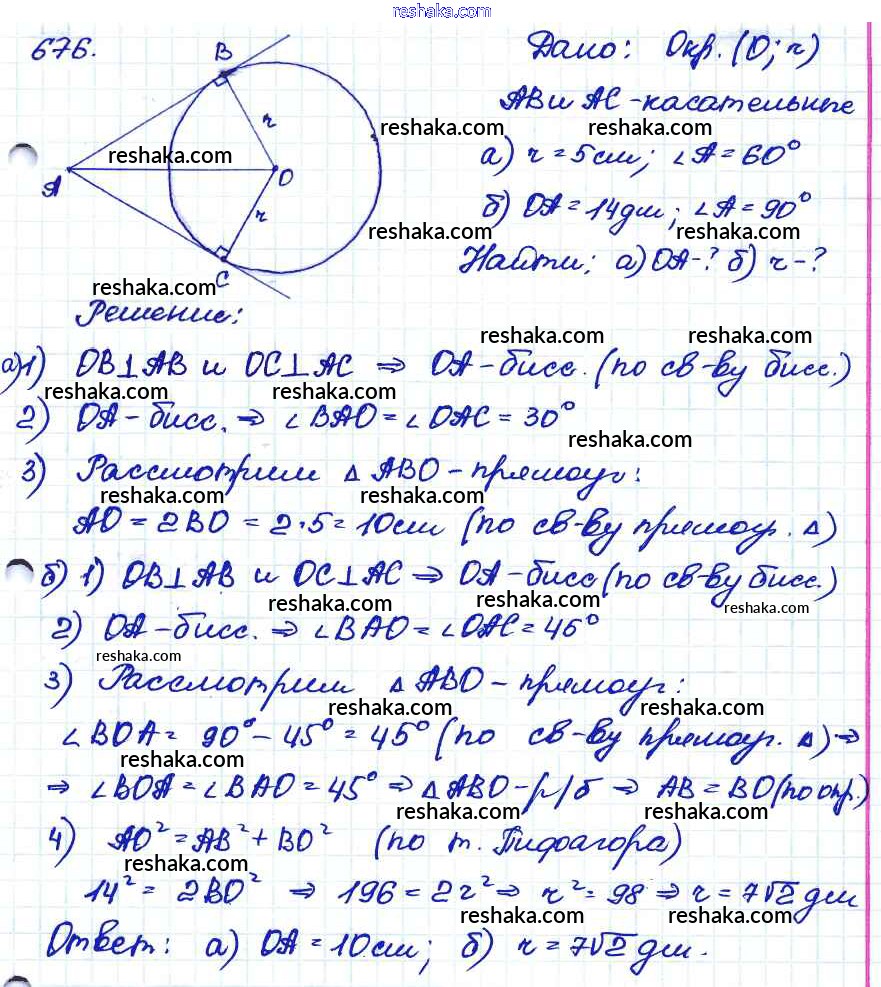 reshaka.com
676.
Дано: Окр. (O; r)
B
AB и AC - касательные
r
reshaka.com
reshaka.com reshaka.com
а) r = 5 см; ∠A = 60°
A
O
б) OA = 14 дм; ∠A = 90°
r
reshaka.com reshaka.com
Найти: а) OA - ? б) r - ?
C
reshaka.com
Решение:
reshaka.com reshaka.com
а) 1) OB⊥AB и OC⊥AC ⇒ OA - бисс. (по св-ву бисс.)
reshaka.com reshaka.com reshaka.com reshaka.com
2) OA - бисс. ⇒ ∠BAO = ∠OAC = 30°
reshaka.com
3) Рассмотрим △ ABO - прямоуг:
reshaka.com reshaka.com
AO = 2BO = 2·5 = 10 см (по св-ву прямоуг. △)
б) 1) OB⊥AB и OC⊥AC ⇒ OA - бисс (по св-ву бисс.)
reshaka.com reshaka.com reshaka.com
2) OA - бисс. ⇒ ∠BAO = ∠OAC = 45°
reshaka.com
3) Рассмотрим △ ABO - прямоуг:
reshaka.com reshaka.com
∠BOA = 90° - 45° = 45° (по св-ву прямоуг. △) ⇒
⇒ ∠BOA = ∠BAO = 45° ⇒ △ABO - р/б ⇒ AB = BO (по опр.)
reshaka.com reshaka.com
4) AO² = AB² + BO² (по т. Пифагора)
reshaka.com
14² = 2BO² ⇒ 196 = 2r² ⇒ r² = 98 ⇒ r = 7√2 дм
reshaka.com reshaka.com
Ответ: а) OA = 10 см; б) r = 7√2 дм.